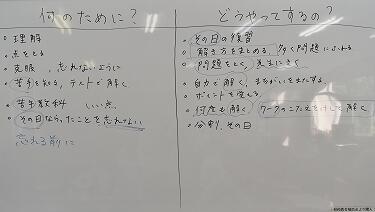 何のために？
◦ 理解
◦ 点をとる
◦ 克服、忘れないように
◦ 苦手を知る、テストで解く
◦ 苦手教科 いい点
◦ その日ならったことを忘れない
忘れる前に
どうやってするの？
◦ その日の復習
◦ 解き方をまとめる、多く問題にふれる
◦ 問題をとく、先生にきく
◦ 自力で解く、まちがいを
◦ ポイントを覚える
◦ 何度も解く ワークのこたえを けして解く
◦ 分割、その日